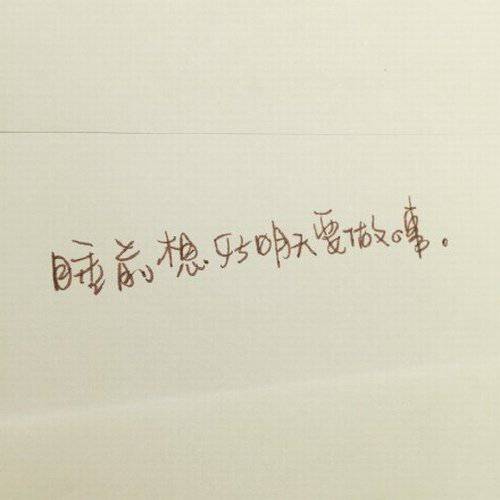 睡前想好明天要做啥事。